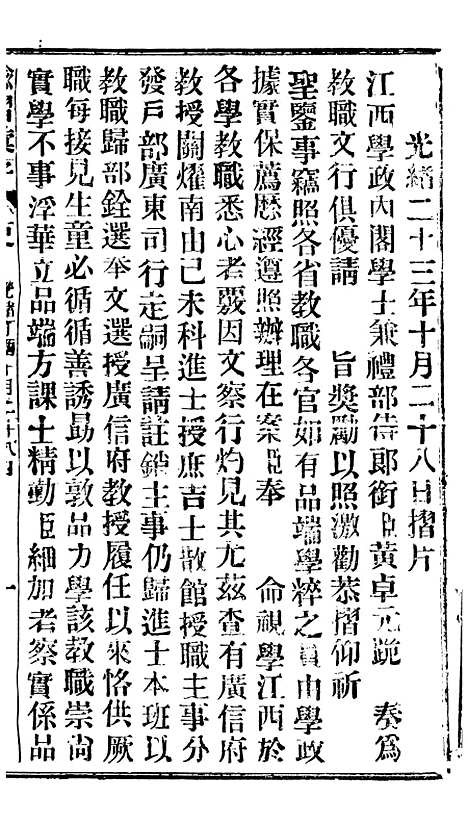 光緒二十三年十月二十八日摺片
江西學政內閣學士兼禮部侍郎銜臣黃卓元跪　奏爲
教職文行俱優請　旨獎勵以照激勸恭摺仰祈
聖鑒事竊照各省教職各官如有品端學粹之員由學政
據實保薦歷經遵照辦理在案臣奉　命視學江西於
各學教職悉心考覈因文察行灼見其尤茲查有廣信府
教授關燿南由己未科進士授庶吉士散館授職主事分
發戶部廣東司行走嗣呈請註銷主事仍歸進士本班以
教職歸部銓選奉文選授廣信府教授履任以來恪供厥
職每接見生童必循循善誘勗以敦品力學該教職崇尙
實學不事浮華立品端方課士精勤臣細加考察實係品
諭摺彙存　卷
光緒丁酉十月二十八日
一